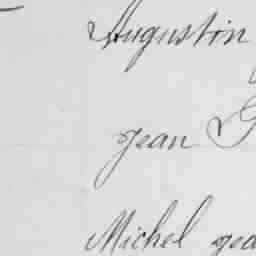 Augustin
Jean G
Michel Jea